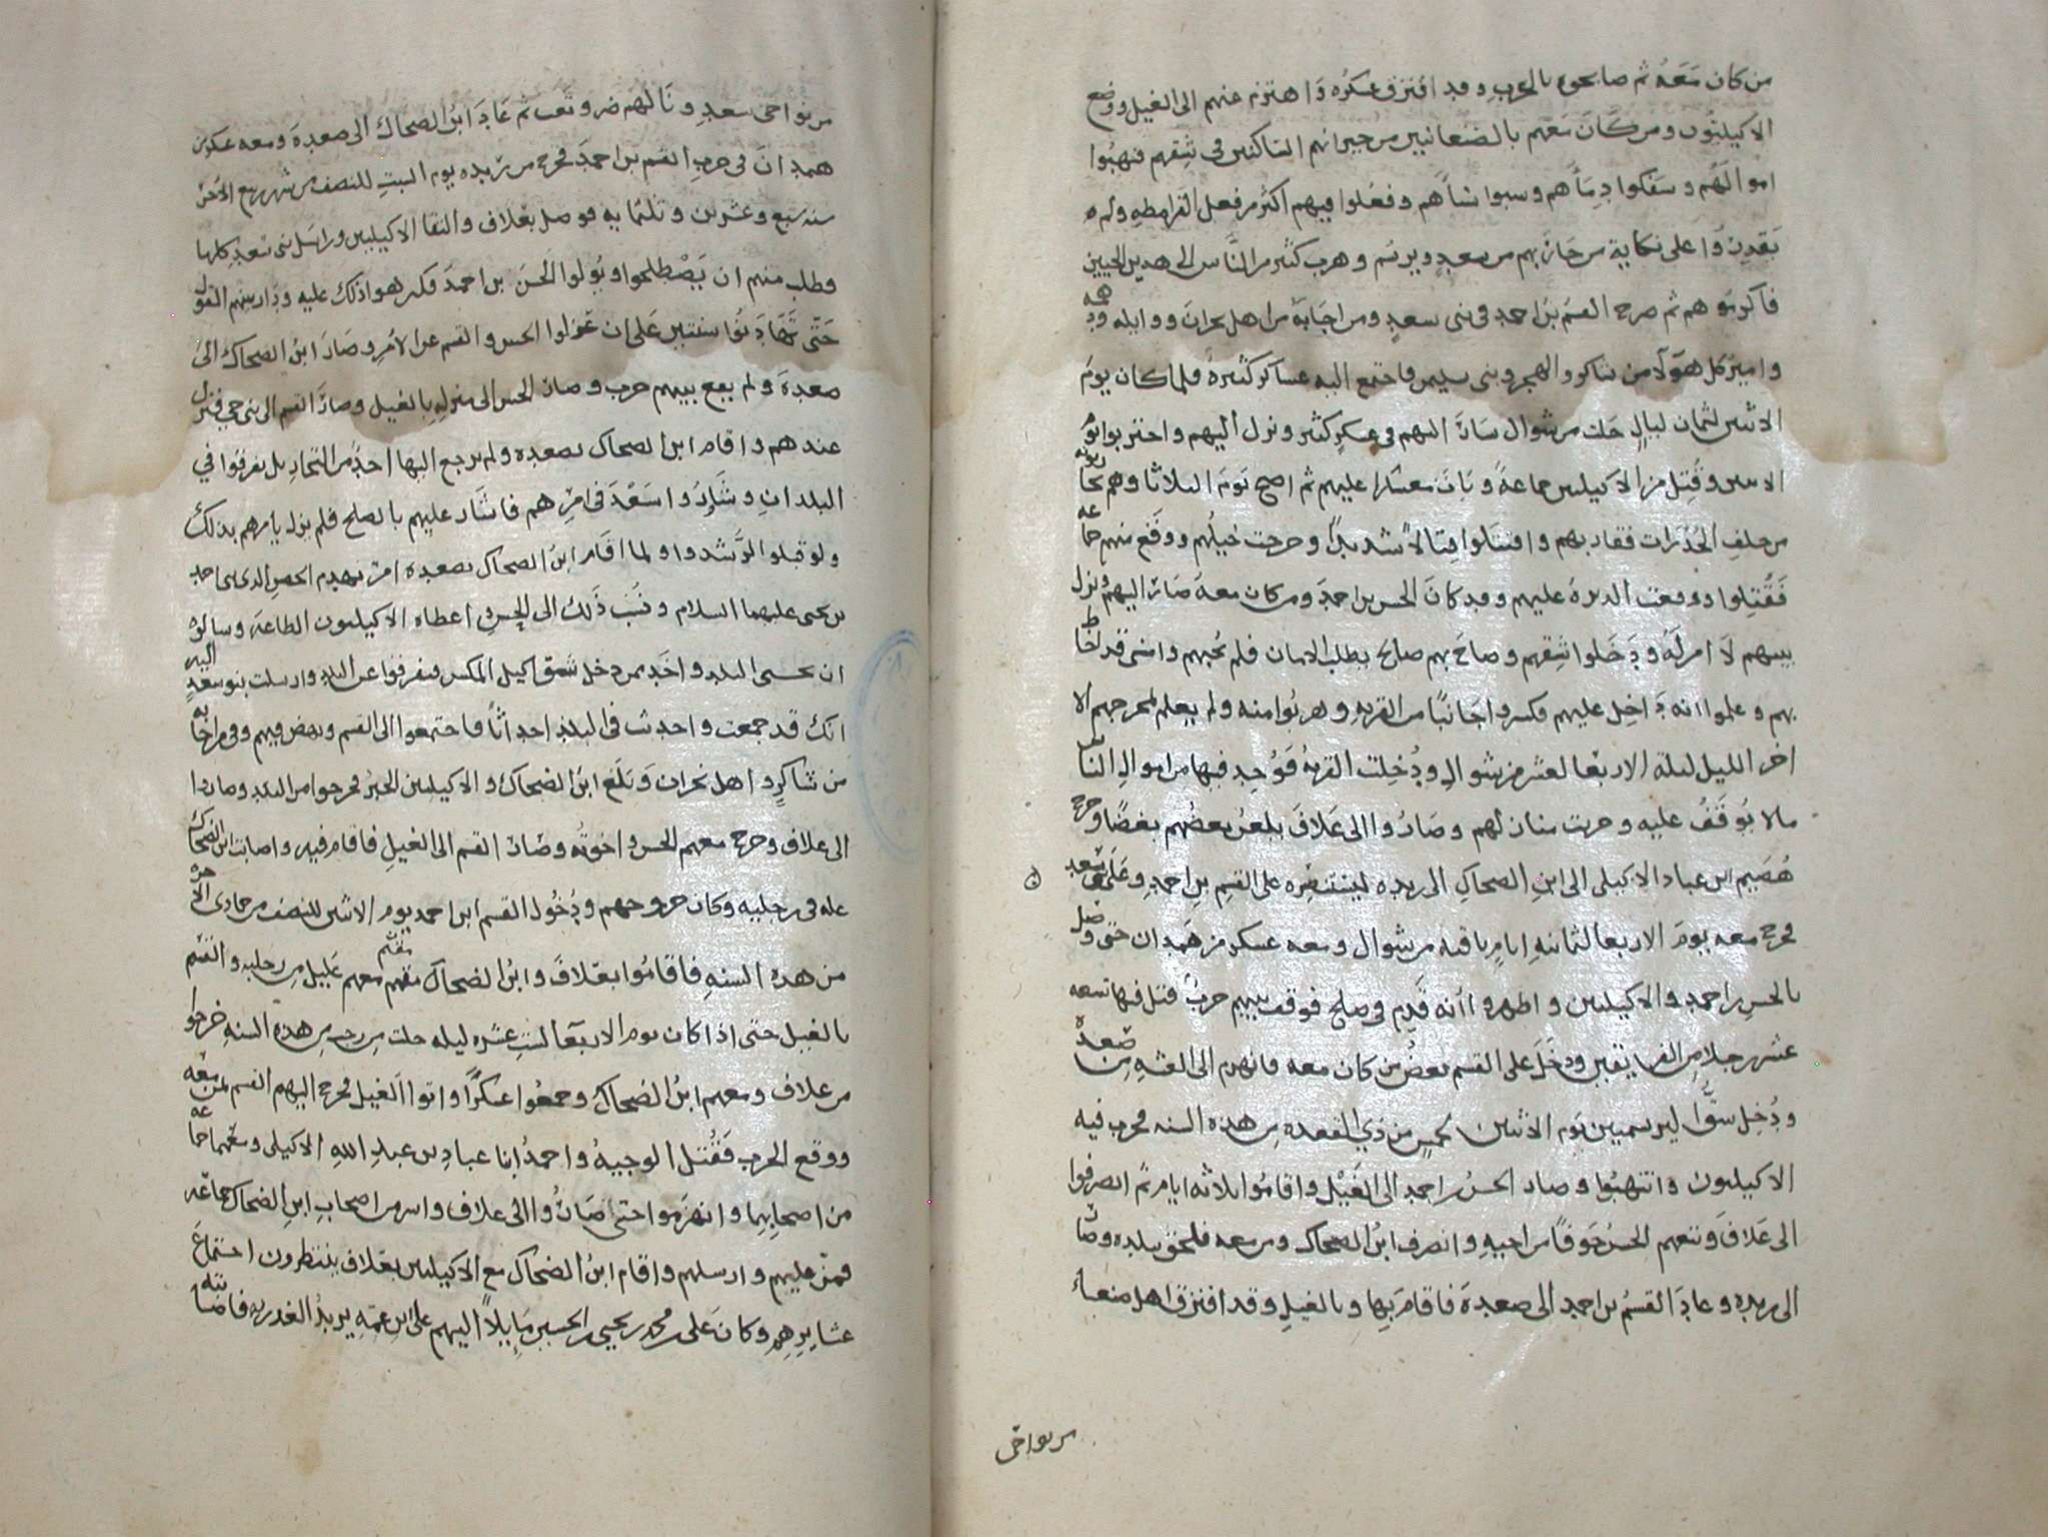 من كان معه ثم صابحوه بالحرب وقد افترق عسكره واهتزم عنهم الى الغيل ووضع
الاكيليون ومن كان معهم بالصنعانيين من جيرانهم الساكنين في شقهم فنهبوا
اموالهم وسفكوا دماهم وسبوا نساهم وفعلوا فيهم اكثر من فعل القرامطه ولم
يقدروا على نكاية من حاربهم من سعد ويرسم وهرب كثير من الناس الى هذين الحيين
فاكرموهم ثم صرح القسم بن احمد في بنى سعد ومن اجابه من اهل نجران ووايله ودهمه
وامير كل هولا من شاكر والهجر وبنى سليمن فاجتمع اليه عساكر كثيره فلما كان يوم
الاثنين لثمان ليال خلت من شوال سار اليهم في عسكر كثير ونزل اليهم واحتربوا يوم
الاثنين وقتل من الاكيليين جماعة وبات معسكرا عليهم ثم اصبح يوم الثلاثا وهم يحاربونه
من خلف الجدرات فقاربهم واقتتلوا قتالا شديدا وخرجت خيلهم ووقع منهم جماعه
فقتلوا ووقعت الدبرة عليهم وقد كان الحسن بن احمد ومن كان معه صار اليهم ونزل
بينهم لا امر له ودخلوا شقهم وصاح بهم صايح يطلب الامان فلم يجبهم وامسى قد احاط
بهم وعلموا انه داخل عليهم فكسروا جانبا من القريه وهربوا منه ولم يعلم بمخرجهم الا
اخر الليل ليلة الاربعا لعشر من شوال ودخلت القريه فوجد فيها من اموال الناس
مالا يوقف عليه وخربت منازلهم وصاروا الى علاف يلعن بعضهم بعضا وخرج
هضيم بن عباد الاكيلى الى ابن الضحاك الى ريده ليستنصره على القسم بن احمد وعلى بنى سعد
فخرج معه يوم الاربعا لثمانيه ايام باقيه من شوال ومعه عسكر من همدان حتى وصل
بالحسن بن احمد والاكيليين واظهروا انه قدم في صلح فوقف بينهم حرب قتل فيها تسعه
عشر رجلا من الفريقين ودخل على القسم بعض من كان معه فانهزم الى القبه من صعدة
ودخل سوق اليرسميين يوم الاثنين لخمس من ذي القعده من هذه السنه فخرب فيه
الاكيليون وانتهبوا وصار الحسن بن احمد الى الغيل واقاموا ثلاثه ايام ثم انصرفوا
الى علاف وتبعهم الحسن خوفا من اخيه وانصرف ابن الضحاك ومن معه فلحق ببلده وصار
الى ريده وعاد القسم بن احمد الى صعدة فاقام بها وبالغيل وقد افترق اهل صنعا
من نواحى
من نواحى سعد ونالهم ضر وتعب ثم عاد ابن الضحاك الى صعدة ومعه عسكر من
همدان في حرب القسم بن احمد فخرج من ريده يوم السبت للنصف من شهر ربيع الاخر
سنه سبع وعشرين وثلثمايه فوصل بعلاف والتقا الاكيليين وراسل بنى سعد كلها
وطلب منهم ان يصطلحوا ويولوا الحسن بن احمد فكرهوا ذلك عليه ودار بينهم القول
حتى تهادنوا سنتين على ان عزلوا الحسن والقسم عن الامر وصار ابن الضحاك الى
صعدة ولم يقع بينهم حرب وصار الحسن الى منزله بالغيل وصار القسم الى بنى حي فنزل
عندهم واقام ابن الضحاك بصعده ولم يرجع اليها احد من التجار بل تفرقوا في
البلدان وشاوروا سعد في امرهم فاشار عليهم بالصلح فلم يزل يامرهم بذلك
ولو قبلوا لرشدوا ولما اقام ابن الضحاك بصعدة امر بهدم الحصن الذى بنى احمد
بن يحيى عليهما السلام ونسب ذلك الى الحسن واعطاه الاكيليون الطاعة وسالوه
ان يجبى البلد واخذ ممن دخل شق اكيل المكس فتفرقوا عن البلد وارسلت بنو سعد اليه
انك قد جمعت واحدثت في البلد احداثا فاجتمعوا الى القسم ونهض فيهم وفي من اجابه
من شاكر واهل نجران وبلغ ابن الضحاك والاكيليين الخبر فخرجوا من البلد وصاروا
الى علاف وخرج معهم الحسن واخوته وصار القسم الى الغيل فاقام فيه واصابت ابن الضحاك
عله في رجليه وكان خروجهم ودخول القسم ابن احمد يوم الاثنين للنصف من جمادى الاخره
من هذه السنه فاقاموا بعلاف وابن الضحاك مقيم معهم عليل من رجليه والقسم
مقيم
بالغيل حتى اذا كان يوم الاربعا لست عشره ليله خلت من رجب من هذه السنه خرجوا
من علاف ومعهم ابن الضحاك وجمعوا عسكرا واتوا الغيل فخرج اليهم القسم بمن معه
ووقع الحرب فقتل الوجيه واحمد ابنا عباد بن عبد الله الاكيلى ومعهما جماعه
من اصحابهما وانهزموا حتى صاروا الى علاف واسر من اصحاب ابن الضحاك جماعه
فمن عليهم وارسلهم واقام ابن الضحاك مع الاكيليين بعلاف ينتظرون اجتماع
عشايرهم وكان على بن محمد بن يحيى بن الحسين مايلا اليهم على ابن عمه يريد الغدر به فاصابته